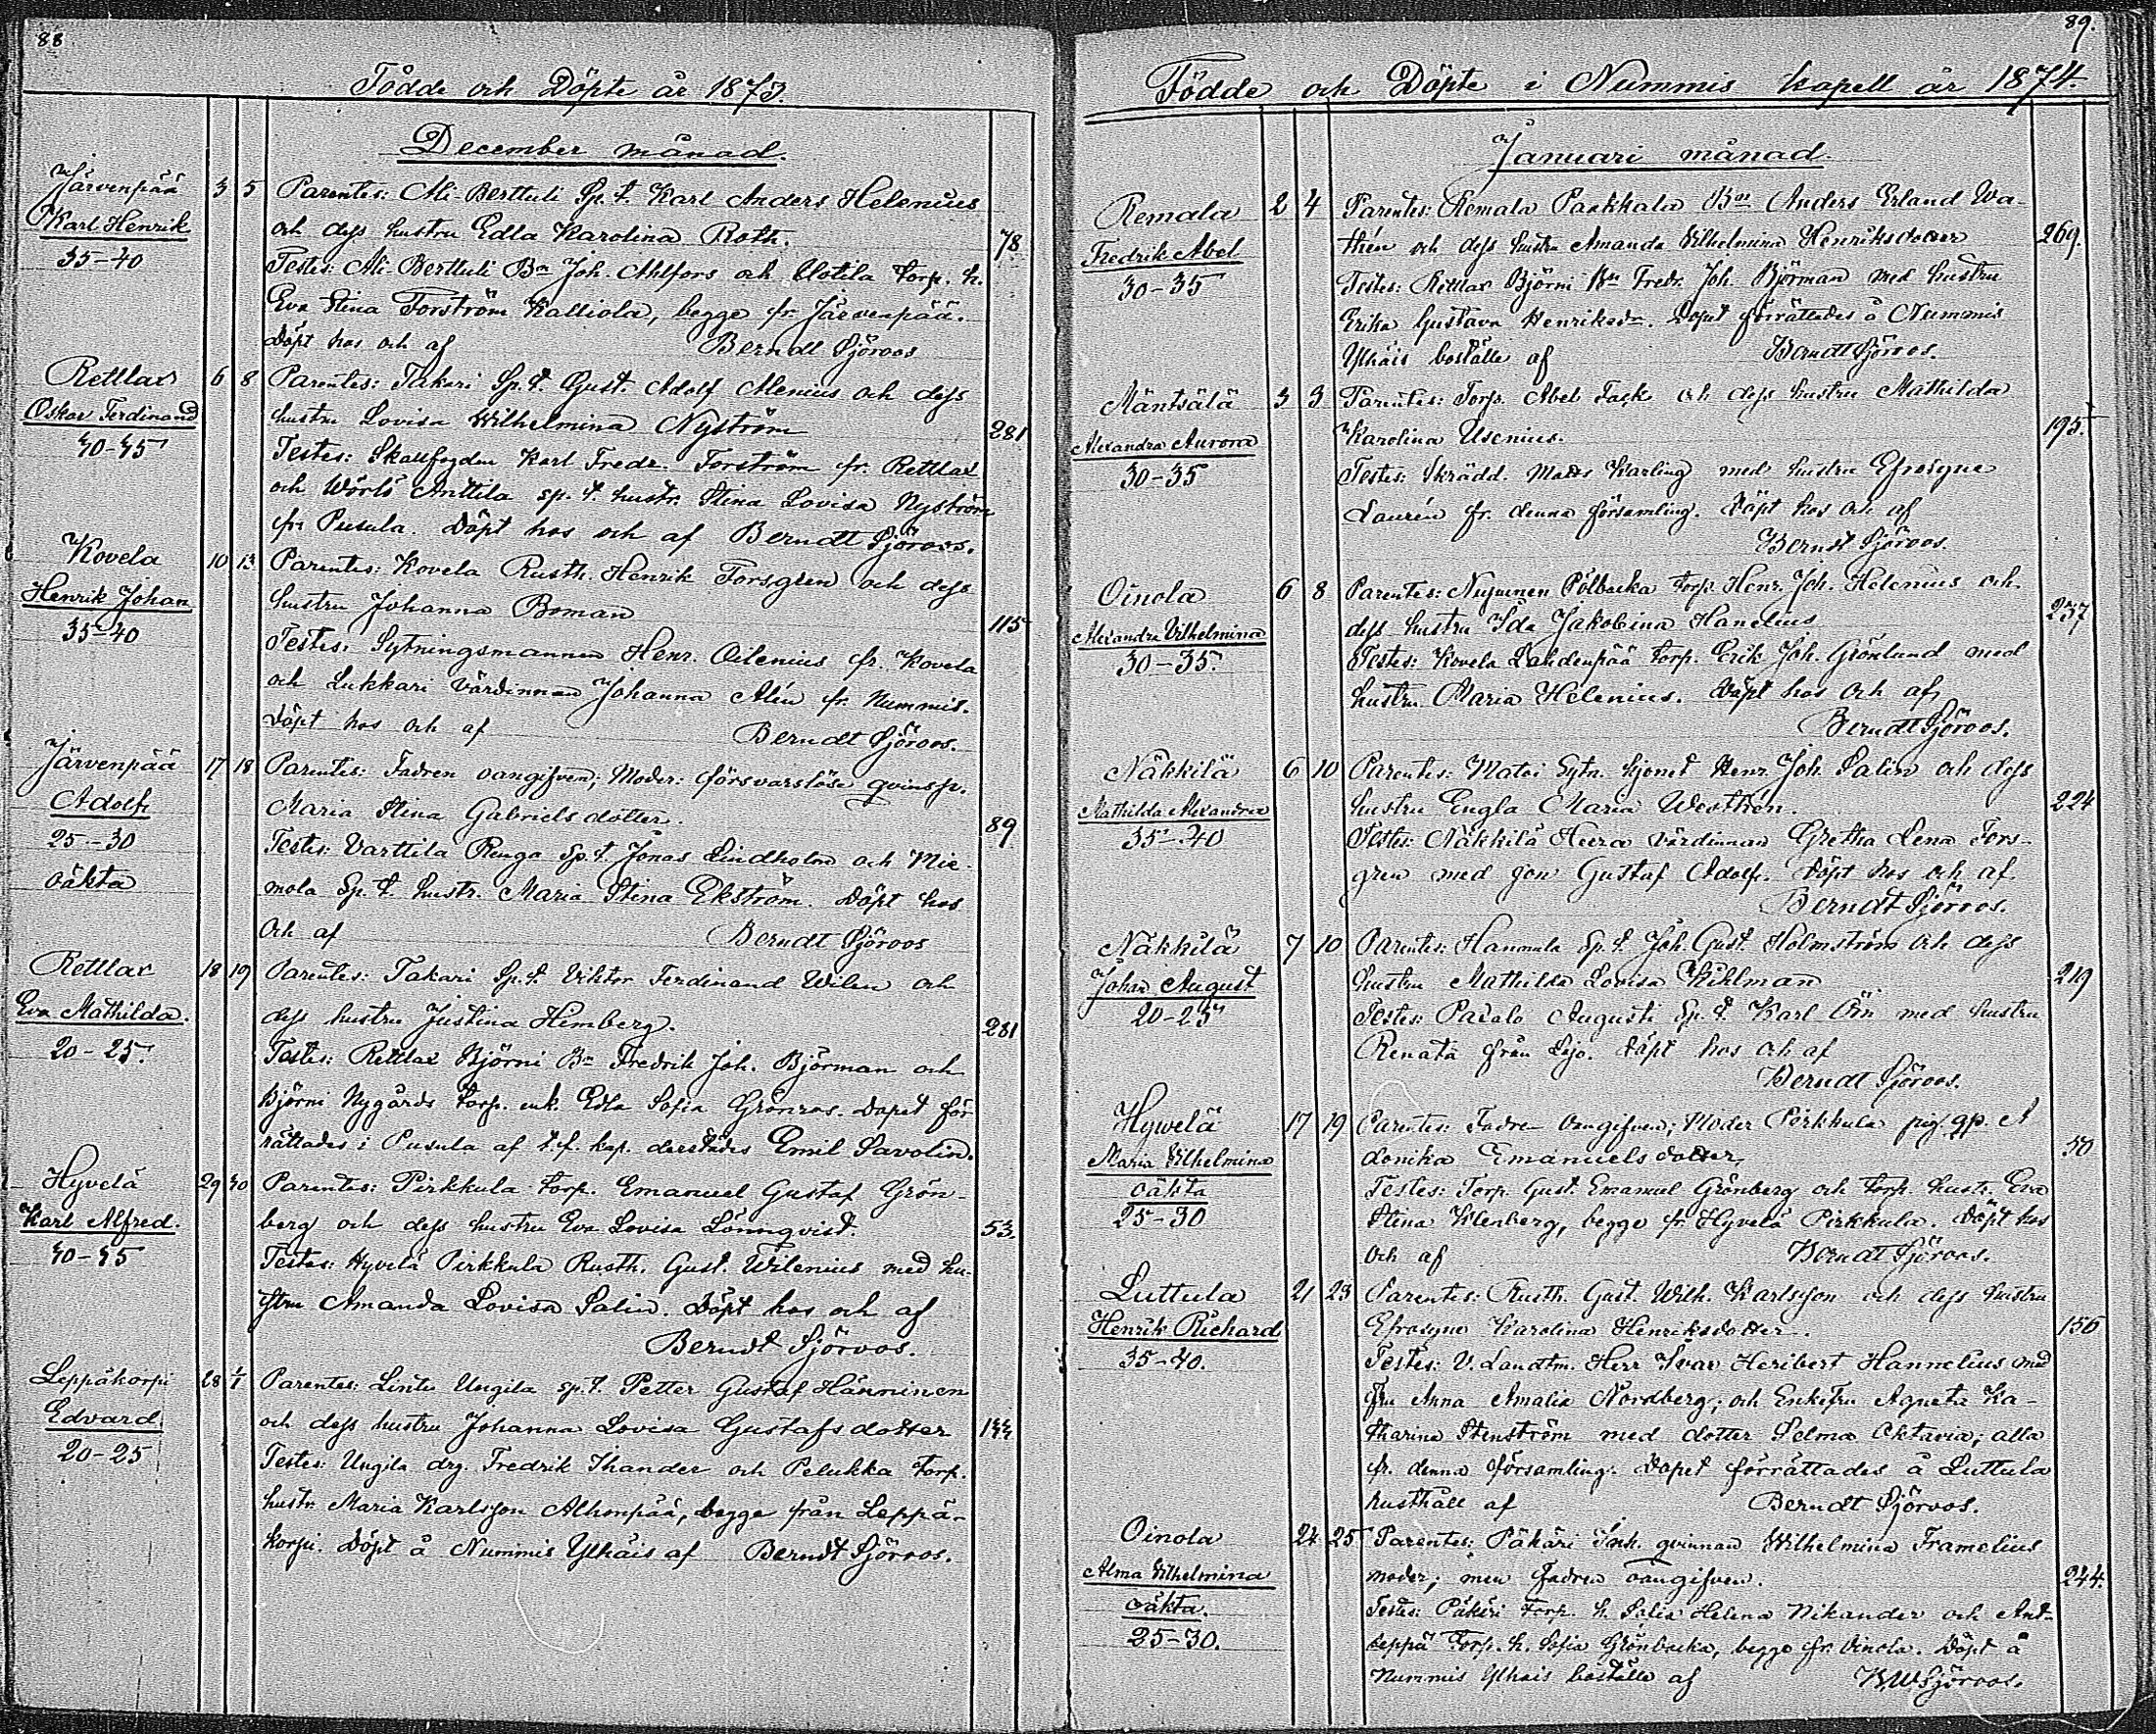 88
Födde och Döpte år 1873.
December månad.
Järvenpää 3 5 Parentes: Ali-Berttuli Sp. t. Karl Anders Helenius
Karl Henrik och dess hustru Edla Karolina Roth. 78.
35-40 Testes: Ali-Berttuli Bn Joh. Ahlfors och Torp. h.
Eva Stina Forström Kalliola, begge fr. Järvenpää.
Döpt hos och af Berndt Sjöroos
Rettlax 6 8 Parentes: Takari Sp. t. Gust. Adolf Alenius och dess
Oskar Ferdinand hustru Lovisa Wilhelmina Nyström 281
40-45 Testes: Skallfogden Karl Fredr. Forström fr. Rettlax
och Anttila sp. t. hustr. Stina Lovisa Nyström
fr. Pusula. Döpt hos och af Berndt Sjöroos.
Kovela 10 13 Parentes: Kovela Rusth. Henrik Forsgren och dess
Henrik Johan hustru Johanna Boman 115
35-40 Testes: Sytningsmannen Henr. Oilenius fr. Kovela
och Lukkari värdinnan Johanna Alén fr. Nummis.
Döpt hos och af Berndt Sjöroos.
Järvenpää 17 18 Parentes: Fadren oangifven; Moder: försvarslösa qvinsp.
Adolf Maria Stina Gabrielsdotter. 89
25-30 Testes: Varttila Renga Sp. t. Jonas Lindholm och Mie-
oäkta mola Sp. t. hustr. Maria Stina Ekström. Döpt hos
och af Berndt Sjöroos
Rettlax 18 19 Parentes: Takari Sp. t. Viktor Ferdinand Wilen och
Eva Mathilda. dess hustru Justina Himberg. 281
20-25. Testes: Rettlax Björni Bn Fredrik Joh. Björman och
Björni Nygårds torp. enk. Edla Sofia Grönroos. Dopet för-
rättades i Pusula af t. f. kap. derstädes Emil Savolin.
Hyvelä 29 30 Parentes: Pirkkula torp. Emanuel Gustaf Grön-
Karl Alfred. berg och dess hustru Eva Lovisa Lönnqvist. 53.
40-45 Testes: Hyvelä Pirkkula Rusth. Gust. Wilenius med hu-
stru Amanda Lovisa Salin. Döpt hos och af
Berndt Sjöroos.
Leppäkorpi 28 1/1 Parentes: Lintu Ungila sp. t. Petter Gustaf Hänninen
Edvard och dess hustru Johanna Lovisa Gustafsdotter 144
20-25 Testes: Ungila drg. Fredrik Ihander och Pelukka torp.
hustr. Maria Karlsson Alhonpää, begge från Leppä-
korpi. Döpt å Nummis Ylhäis af Berndt Sjöroos.
89.
Födde och Döpte i Nummis kapell år 1874.
Januari månad.
Remala 2 4 Parentes: Remala Paakkala Bon Anders Erland Wa-
Fredrik Abel thén och dess hustru Amanda Vilhelmina Henriksdotter 269.
30-35 Testes: Rettlax Björni Bn Fredr. Joh. Björman med hustru
Erika Gustava Henriksdr. Dopet förrättades å Nummis
Ylhäis boställe af Berndt Sjöroos.
Mäntsälä 3 3 Parentes: Torp. Abel Fack och dess hustru Mathilda
Alexandra Aurora Karolina Usenius. 195.
30-35 Testes: Skrädd. Matts Karling med hustru Efrosyne
Laurén fr. denna församling. Döpt hos och af
Berndt Sjöroos.
Oinola 6 8 Parentes: Nujunen Pölbacka torp. Henr. Joh. Helenius och
Alexandra Vilhelmina dess hustru Ida Jakobina Hanelius 237
30-35. Testes: Kovela Lahdenpää torp. Erik Joh. Grönlund med
hustru Maria Helenius. Döpt hos och af
Berndt Sjöroos.
Näkkilä 6 10 Parentes: Matoi Sytn. hjonet Henr. Joh. Salin och dess
Mathilda Alexandra hustru Engla Maria Weström. 224
35-40 Testes: Näkkilä Heera värdinnan Gretha Lena Fors-
gren med son Gustaf Adolf. Döpt hos och af
Berndt Sjöroos.
Näkkilä 7 10 Parentes: Hannula Sp. t. Joh. Gust. Holmström och dess
Johan August hustru Mathilda Lovisa Kihlman 219
20-25 Testes: Pavalo Augusti Sp. t. Karl Öin med hustru
Renata från Lojo. Döpt hos och af
Berndt Sjöroos.
Hywelä 17 19 Parentes: Fadren oangifven; Moder Pirkkula pig. qp. A
Maria Vilhelmina donika Emanuelsdotter. 50
oäkta Testes: Torp. Gust. Emanuel Grönberg och torp. hustr. Eva
25-30 Stina Klenberg, begge fr. Hyvelä Pirkkula. Döpt hos
och af Berndt Sjöroos.
Luttula 21 23 Parentes: Rusth. Gust. Wilh. Karlsson och dess hustru
Henrik Richard Efrosyne Karolina Henriksdotter. 156
35-40. Testes: V. Landtm. Herr Ivar Heribert Hannelius med
fru Anna Amalia Nordberg; och Enkefru Agneta Ka-
tharina Stenström med dotter Selma Oktavia; alla
fr. denna församling. Dopet förrättades å Luttula
rusthåll af Berndt Sjöroos.
Oinola 24 25 Parentes: Päkäri Inh. qvinnan Wilhelmina Framelius
Alma Vilhelmina moder; men fadren oangifven. 244.
oäkta. Testes: Päkäri torp. h. Helena Nikander och Ant-
25-30. seppä torp. h. Sofia Grönbacka, begge fr. Oinola. Döpt å
Nummis Ylhäis boställe af BWSjöroos.